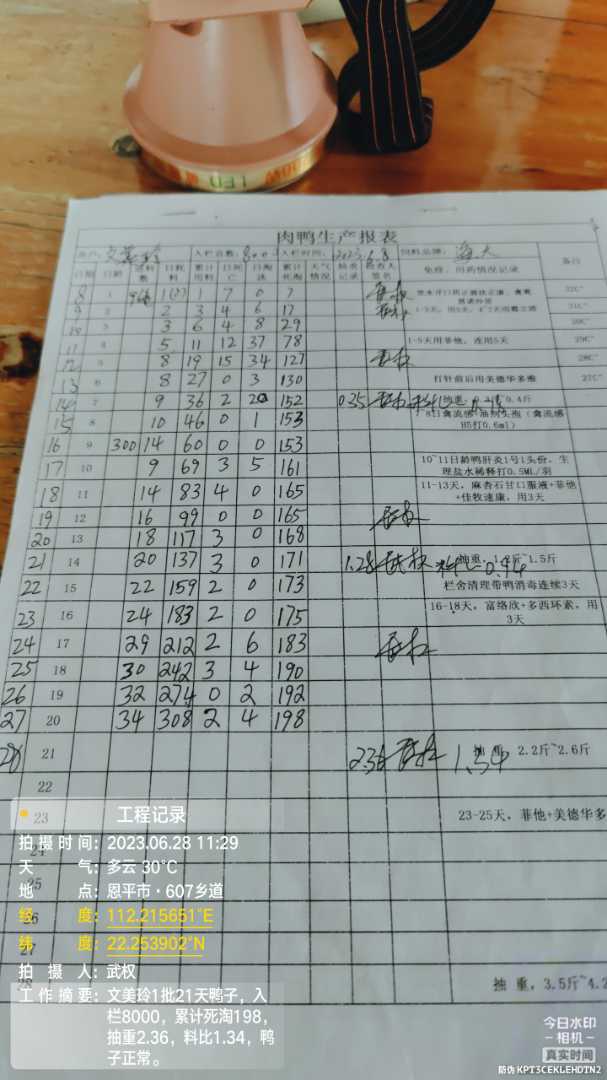 LED
肉鸭生产报表
文美玲 入栏总数: 8000 入栏时间: 2023.6.8 饲料品牌: 海大
日期 日龄 进料数 日耗料 累计用料 日死亡 日淘汰 累计死淘 天气情况 抽重记录 检查人签名 免疫、用药情况记录 备注
8 1 1 7 0 7 32C°
9 2 2 3 4 6 17 31C°
10 3 3 6 4 8 29 30C°
11 4 5 11 12 37 78 1-5天用菲他, 连用5天 29C°
12 5 8 19 15 34 127 28C°
13 6 8 27 0 3 130 打针前后用美德华多维 27C°
14 7 9 36 2 20 152 0.35
15 8 10 46 0 1 153 油剂头孢(禽流感H5打0.6ml)
16 9 300 14 60 0 0 153
17 10 9 69 3 5 161 10~11日龄鸭肝炎1号1头份, 生理盐水稀释打0.5ML/羽
18 11 14 83 4 0 165 11-13天, 麻杏石甘口服液+菲他+佳牧速康, 用3天
19 12 16 99 0 0 165
20 13 18 117 3 0 168
21 14 20 137 3 0 171 1.28 抽重, 1.2斤~1.5斤 0.94
22 15 22 159 2 0 173 栏舍清理带鸭消毒连续3天
23 16 24 183 2 0 175 16-18天, 富络欣+多西环素, 用3天
24 17 29 212 2 6 183
25 18 30 242 3 4 190
26 19 32 274 0 2 192
27 20 34 308 2 4 198
28 21 2.36 1.34 抽重 2.2斤~2.6斤
22
23 23-25天, 菲他+美德华多
24
25
26
27
28 抽重, 3.5斤~4.2
工程记录
拍摄时间: 2023.06.28 11:29
天气: 多云 30℃
地点: 恩平市·607乡道
经度: 112.215651°E
纬度: 22.253902°N
拍摄人: 武权
工作摘要: 文美玲1批21天鸭子, 入栏8000, 累计死淘198, 抽重2.36, 料比1.34, 鸭子正常。
今日水印
-相机-
真实时间
防伪 KPT3CEKLEHDTN2